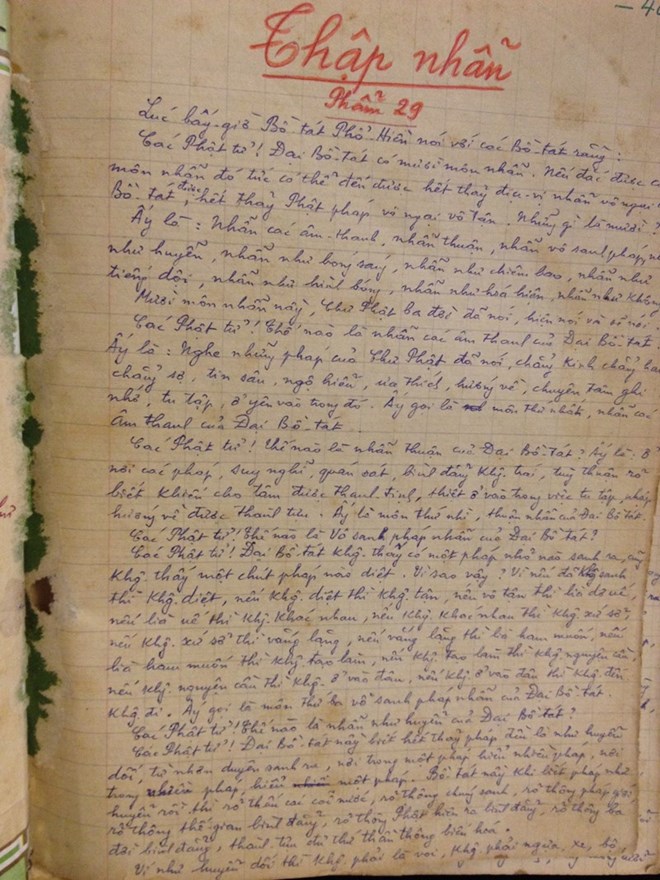 - 40
Thập nhẫn
Phẩm 29
Lúc bấy-giờ Bồ-tát Phổ-Hiền nói với các Bồ-tát rằng:
Các Phật tử! Đại Bồ-tát có mười môn nhẫn. Nếu đắc được
môn nhẫn đó tức có thể đến được hết thảy địa-vị nhẫn vô ngại
Bồ-tát, được hết thảy Phật pháp vô ngại vô tận. Những gì là mười?
Ấy là: Nhẫn các âm-thanh, nhẫn thuận, nhẫn vô sanh pháp,
như huyễn, nhẫn như bóng sáng, nhẫn như chiêm bao, nhẫn như
tiếng dội, nhẫn như hình bóng, nhẫn như hoá hiện, nhẫn như không
Mười môn nhẫn này, chư Phật ba đời đã nói, hiện nói và sẽ nói.
Các Phật tử! Thế nào là nhẫn các âm thanh của Đại Bồ-tát?
Ấy là: Nghe những pháp của Chư Phật đã nói, chẳng kinh chẳng
chẳng sợ, tin sâu, ngộ hiểu, ưa thích, hướng về, chuyên tâm ghi
nhớ, tu tập, ở yên vào trong đó. Ấy gọi là môn thứ nhất, nhẫn các
âm thanh của Đại Bồ-tát.
Các Phật tử! Thế nào là nhẫn thuận của Đại Bồ-tát? Ấy là: Ở
nơi các pháp, suy nghĩ, quán sát, bình đẳng khg. trái, tuỳ thuận rõ
biết khiến cho tâm được thanh tịnh, thiết ở vào trong việc tu tập, pháp
hướng về được thành tựu. Ấy là môn thứ nhì, thuận nhẫn của Đại Bồ-tát.
Các Phật tử! Thế nào là Vô sanh pháp nhẫn của Đại Bồ-tát?
Các Phật tử! Đại Bồ-tát khg. thấy có một pháp nhỏ nào sanh ra, cũng
khg. thấy một chút pháp nào diệt. Vì sao vậy? Vì nếu đã khg sanh
thì khg. diệt, nếu khg. diệt thì khg. tận, nếu vô tận thì lìa dơ uế,
nếu lìa uế thì khg. khác nhau, nếu khg. khác nhau thì khg. xứ sở,
nếu khg. xứ sở thì vắng lặng, nếu vắng lặng thì lìa ham muốn, nếu
lìa ham muốn thì khg. tạo làm, nếu khg. tạo làm thì khg nguyện cầu,
nếu khg. nguyện cầu thì khg. ở vào đâu, nếu khg. ở vào đâu thì khg. đến
khg. đi. Ấy gọi là môn thứ ba vô sanh pháp nhẫn của Đại Bồ-tát.
Các Phật tử! Thế nào là nhẫn như huyễn của Đại Bồ-tát?
Các Phật tử! Đại Bồ-tát nầy biết hết thảy pháp đều là như huyễn
dối, từ nhơn duyên sanh ra, nơi trong một pháp hiểu nhiều pháp, nơi
trong nhiều pháp, hiểu một pháp. Bồ-tát nầy khi biết pháp như
huyễn rồi thì rõ thấu các cõi nước, rõ thông chúng sanh, rõ thông pháp giới
rõ thông thế-gian bình đẳng, rõ thông Phật hiện ra bình đẳng, rõ thông ba
đời bình đẳng, thành tựu đủ thứ thần thông biến hoá.
Ví như huyễn dối thì khg. phải là voi, khg. phải ngựa, xe, bộ,